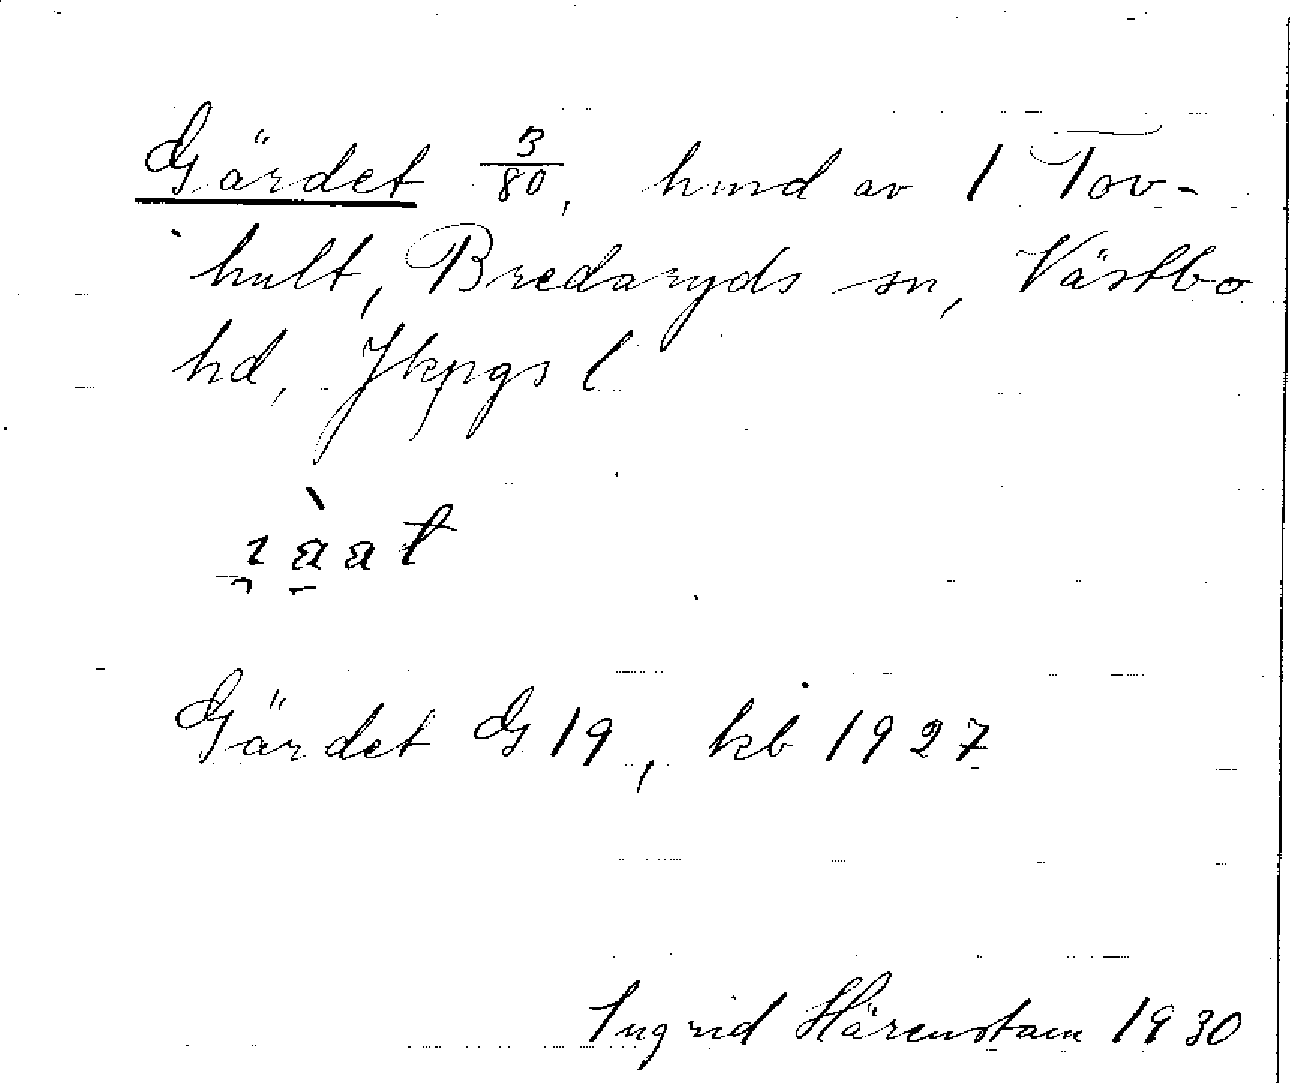 Gärdet 3/80, hmd av 1 Tov-
hult, Bredaryds sn, Västbo
hd, Jkpgs l
Gärdet G 19, kb 1927
Ingrid Härenstam 1930